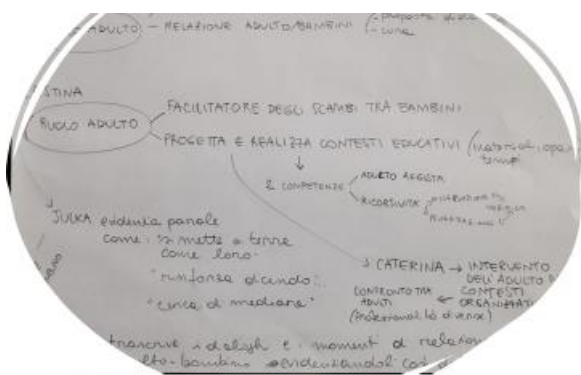 ADULTO) - RELAZIONE ADULTO/BAMBINI (- proposta di
- cura
STINA
RUOLO ADULTO
FACILITATORE DEGLI SCAMBI TRA BAMBINI
PROGETTA E REALIZZA CONTESTI EDUCATIVI (materiali, spazi
tempi
2 COMPETENZE
ADULTO REGISTA
RICORSIVITÀ
JULKA evidenzia parole
come: si mette a terra
come loro.
"rinforza dicendo"..
"cerca di mediare"
CATERINA → INTERVENTO
DELL'ADULTO
CONTESTI
ORGANIZZATI
CONFRONTO TRA
ADULTI
(Professionalità diverse)
trascrive i dialoghi e i momenti di relazione
adulto-bambino evidenziandoli così